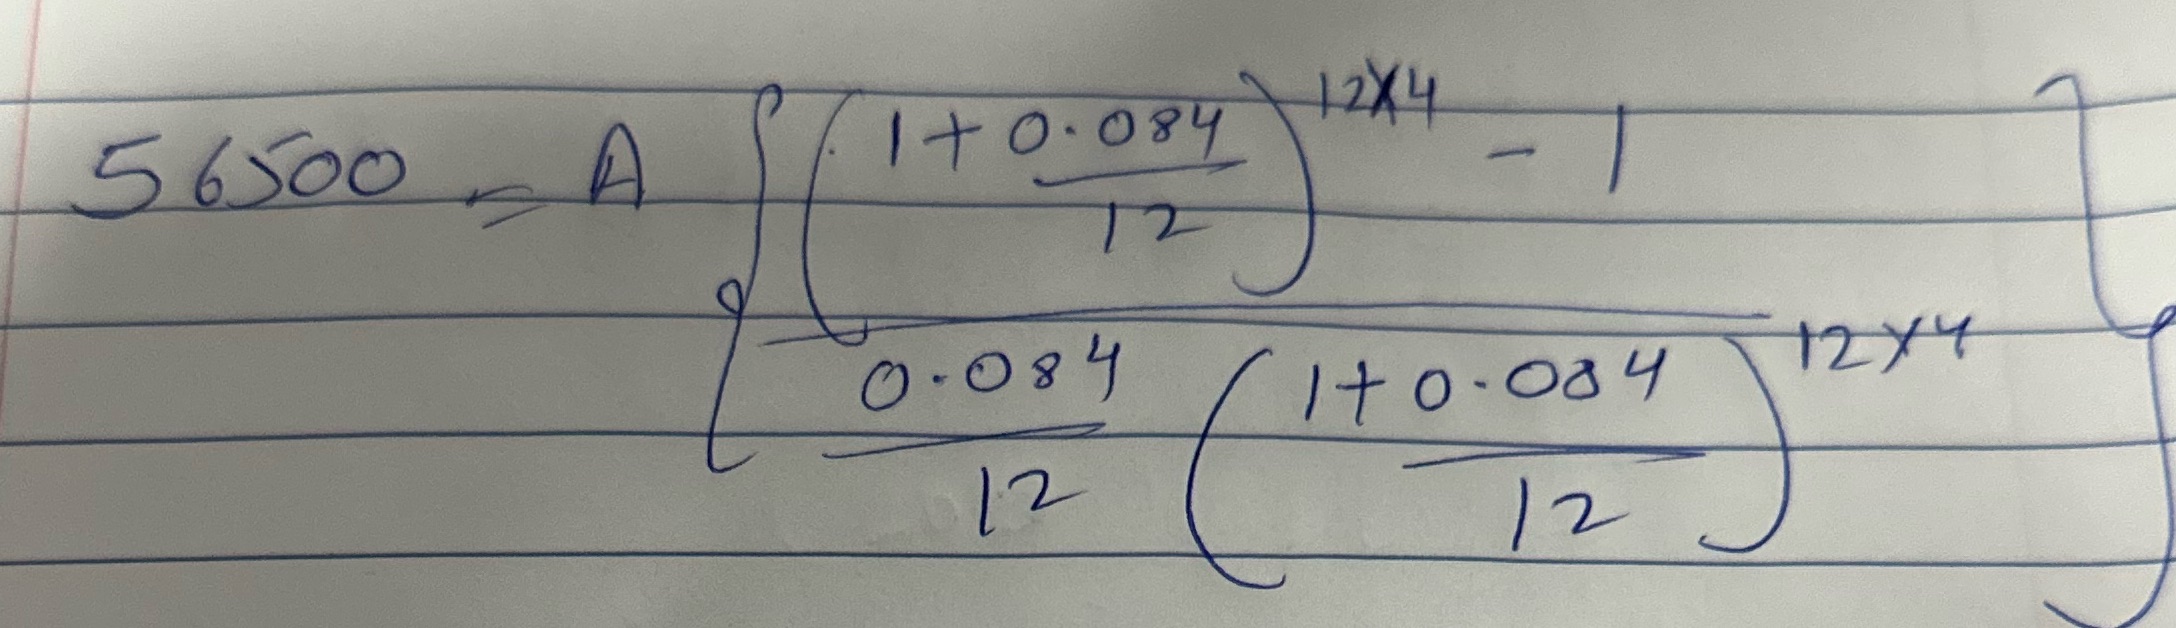 56500 = A { (1 + 0.084/12)^12×4 - 1
0.084/12 (1 + 0.084/12)^12×4 }